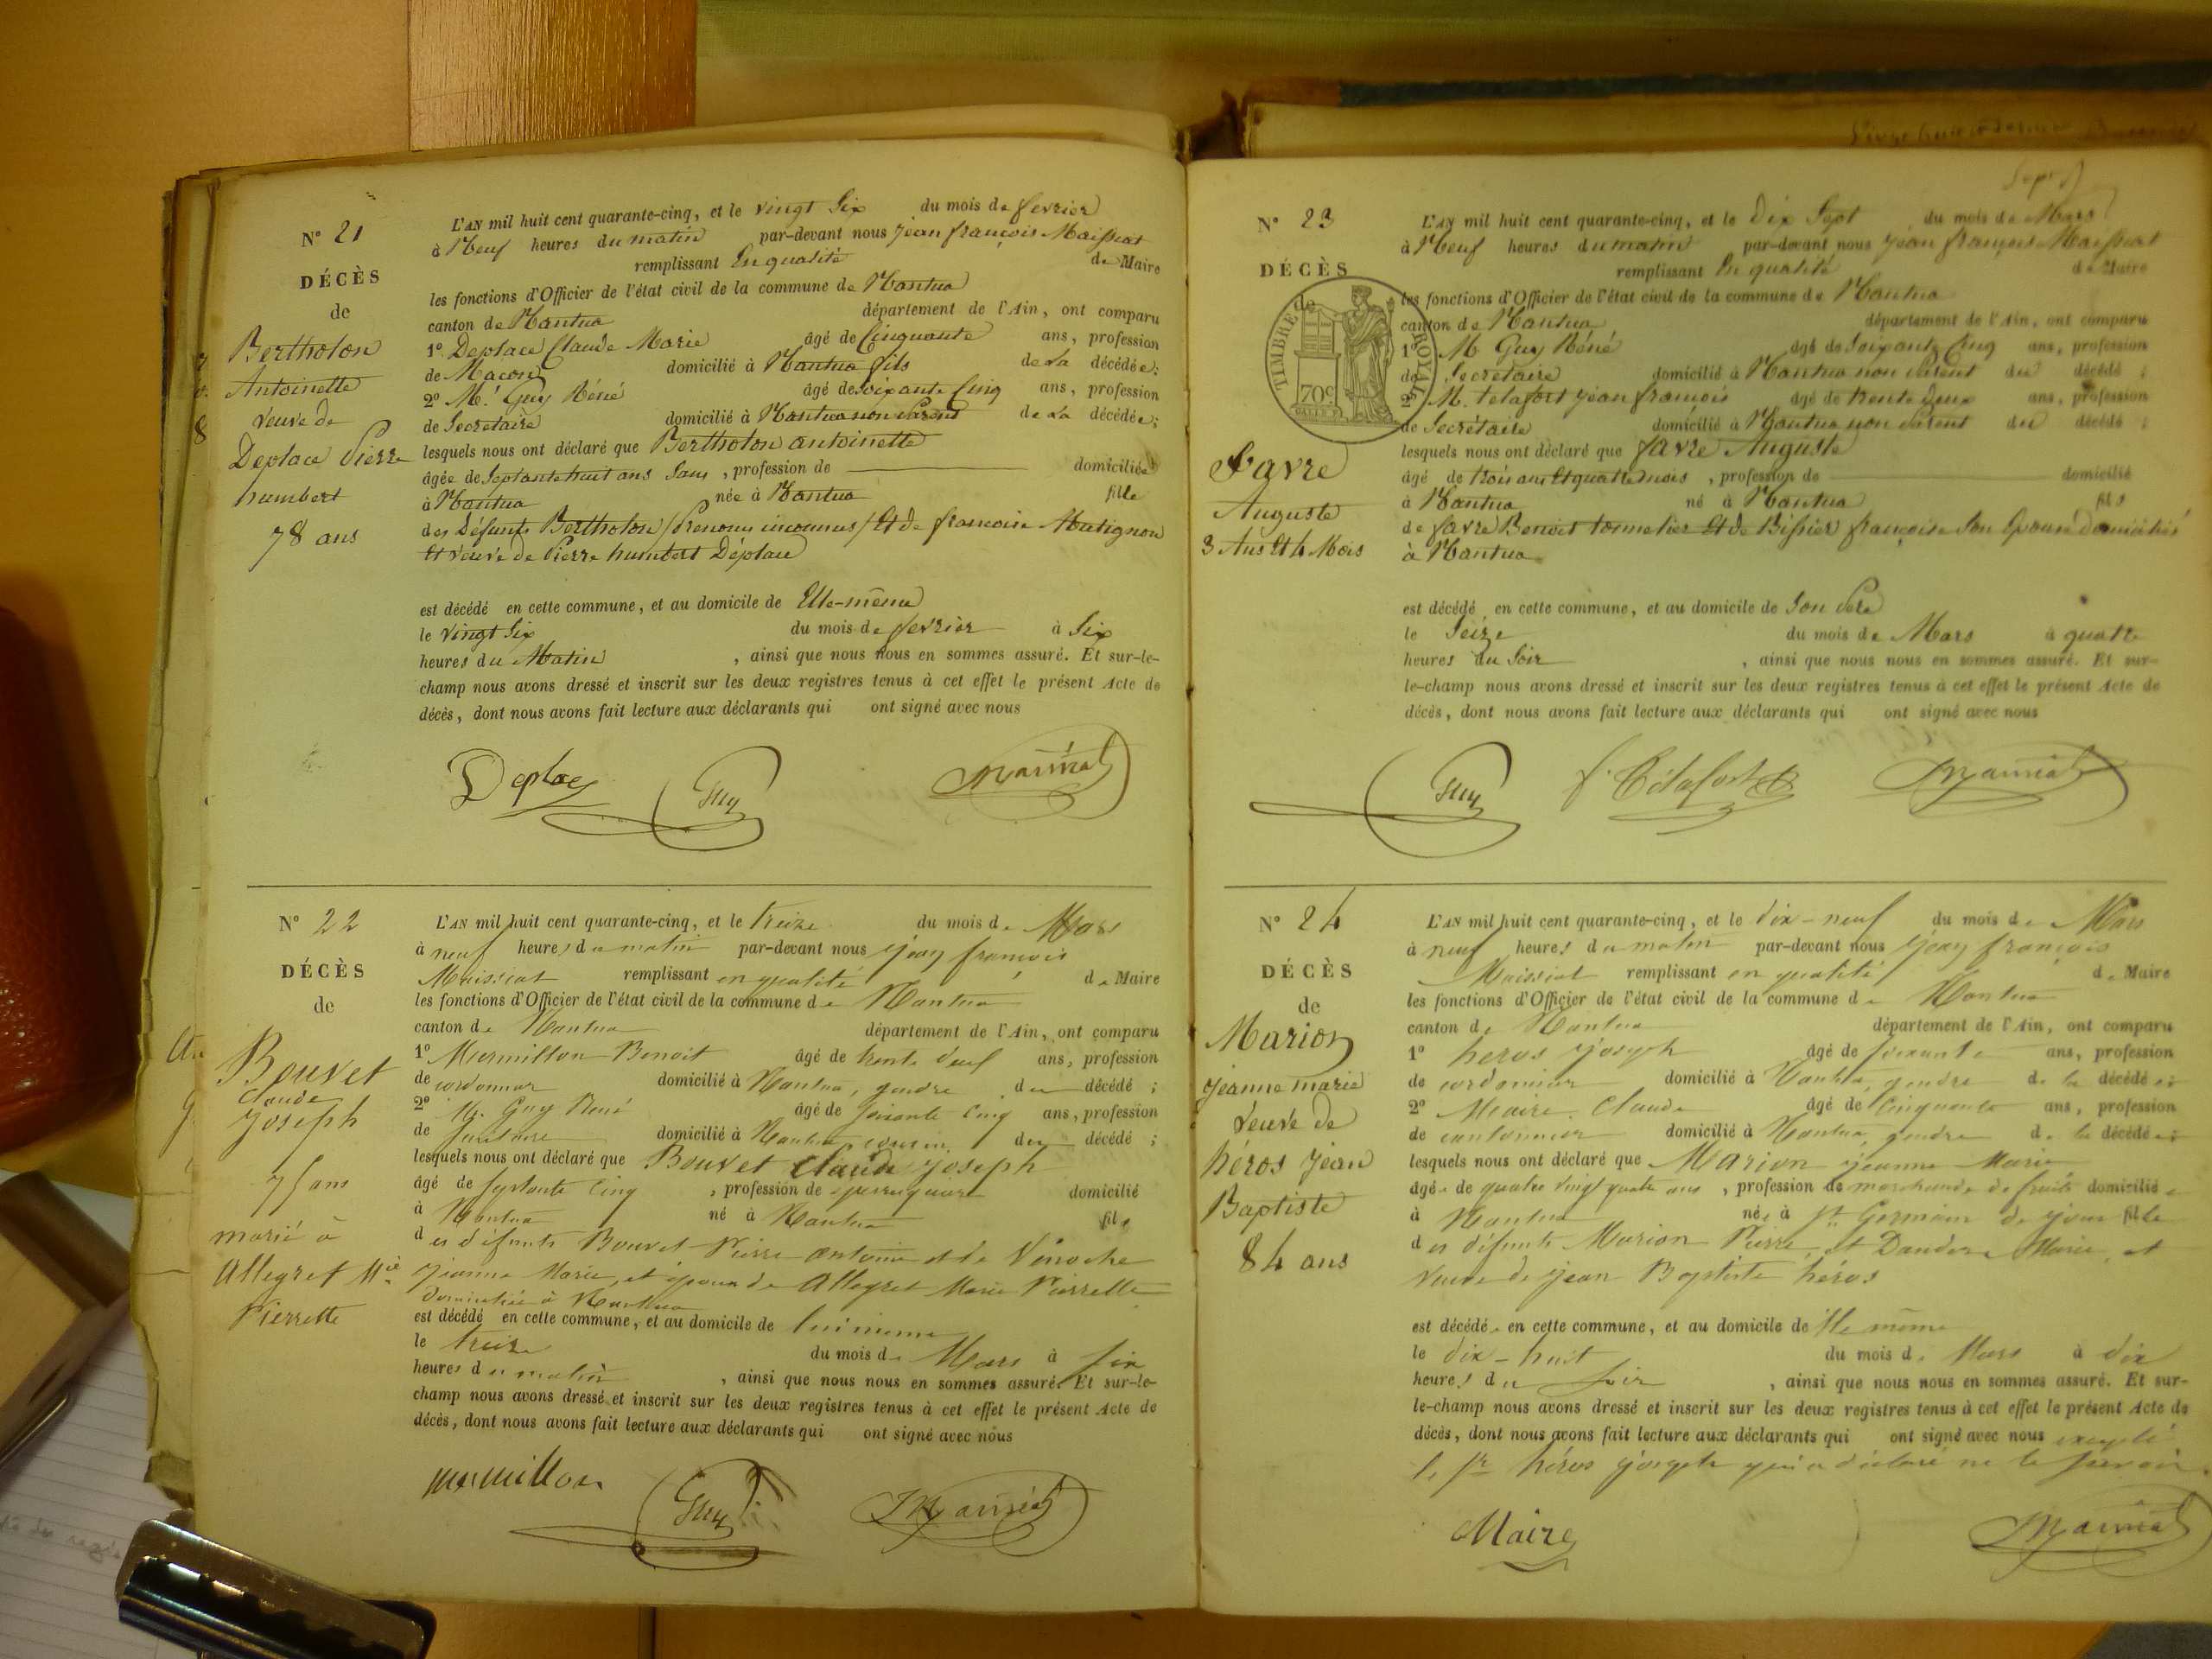 N° 21
DÉCÈS
de
Bertholon
Antoinette
veuve de
Deplace Pierre
humbert
78 ans
L'AN mil huit cent quarante-cinq, et le vingt Six du mois de fevrier
à Neuf heures du matin par-devant nous Jean françois Maissiat
remplissant En qualité de Maire
les fonctions d'Officier de l'état civil de la commune de Nantua
canton de Nantua département de l'Ain, ont comparu
1° Deplace Claude Marie âgé de Cinquante ans, profession
de Macon domicilié à Nantua fils de La décédée;
2° Mr. Guy Réné âgé de soixante Cinq ans, profession
de Secretaire domicilié à Nantua non Parent de La décédée;
lesquels nous ont déclaré que Bertholon antoinette
âgée de Septante huit ans Sans, profession de domiciliée
à Nantua née à Nantua fille
des Défunts Bertholon / Prenoms inconnus / Et de francoise Mutignon
Et veuve de Pierre humbert Déplace
est décédé en cette commune, et au domicile de Elle-même
le vingt Six du mois de fevrier à Six
heures du Matin, ainsi que nous nous en sommes assuré. Et sur-le-
champ nous avons dressé et inscrit sur les deux registres tenus à cet effet le présent Acte de
décès, dont nous avons fait lecture aux déclarants qui ont signé avec nous
Deplace Guy Maissiat
N° 22
DÉCÈS
de
Bouvet
Claude
Joseph
75 ans
marié à
Allegret Mie
Pierrette
L'AN mil huit cent quarante-cinq, et le treize du mois de Mars
à neuf heures du matin par-devant nous Jean françois
Maissiat remplissant en qualité de Maire
les fonctions d'Officier de l'état civil de la commune de Nantua
canton de Nantua département de l'Ain, ont comparu
1° Murmillon Benoit âgé de trente neuf ans, profession
de cordonnier domicilié à Nantua, gendre du décédé;
2° M. Guy René âgé de soixante cinq ans, profession
de secretaire domicilié à Nantua cousin du décédé;
lesquels nous ont déclaré que Bouvet Claude Joseph
âgé de septante cinq, profession de perruquier domicilié
à Nantua né à Nantua fils
des défunts Bouvet Pierre antoine et de
Jeanne Marie, et époux de Allegret Marie Pierrette
Domiciliée à Nantua
est décédé en cette commune, et au domicile de lui même
le treize du mois de Mars à six
heures du matin, ainsi que nous nous en sommes assuré. Et sur-le-
champ nous avons dressé et inscrit sur les deux registres tenus à cet effet le présent Acte de
décès, dont nous avons fait lecture aux déclarants qui ont signé avec nous
Murmillon Guy Maissiat
Sept
N° 23
DÉCÈS
de
TIMBRE ROYAL
70c
Favre
Auguste
3 Ans Et 4 Mois
L'AN mil huit cent quarante-cinq, et le Dix Sept du mois de Mars
à Neuf heures du matin par-devant nous Jean françois Maissiat
remplissant En qualité de Maire
les fonctions d'Officier de l'état civil de la commune de Nantua
canton de Nantua département de l'Ain, ont comparu
1° M. Guy Réné âgé de Soixante Cinq ans, profession
de Secretaire domicilié à Nantua non Parent du décédé;
2° M. Telafort Jean françois âgé de trente Deux ans, profession
de Secrétaire domicilié à Nantua non Parent du décédé;
lesquels nous ont déclaré que favre Auguste
âgé de trois ans Et quatre mois, profession de domicilié
à Nantua né à Nantua fils
de favre Benoit tonnelier Et de françoise Son Epouse Domiciliés
à Nantua
est décédé en cette commune, et au domicile de Son Pere
le Seize du mois de Mars à quatre
heures du Soir, ainsi que nous nous en sommes assuré. Et sur-
le-champ nous avons dressé et inscrit sur les deux registres tenus à cet effet le présent Acte de
décès, dont nous avons fait lecture aux déclarants qui ont signé avec nous
Guy f. Télafort Maissiat
N° 24
DÉCÈS
de
Marion
Jeanne marie
Veuve de
héros Jean
Baptiste
84 ans
L'AN mil huit cent quarante-cinq, et le dix-neuf du mois de Mars
à neuf heures du matin par-devant nous Jean françois
Maissiat remplissant en qualité de Maire
les fonctions d'Officier de l'état civil de la commune de Nantua
canton de Nantua département de l'Ain, ont comparu
1° heros Joseph âgé de soixante ans, profession
de cordonnier domicilié à Nantua, gendre de la décédée;
2° Maire Claude âgé de cinquante ans, profession
de cantonnier domicilié à Nantua, gendre de la décédée;
lesquels nous ont déclaré que Marion Jeanne Marie
âgée de quatre vingt quatre ans, profession de marchande de fruits domiciliée
à Nantua née à St Germain de Joux fille
des défunts Marion Pierre, et Marie, et
veuve de Jean Baptiste héros
est décédée en cette commune, et au domicile de Elle même
le dix-huit du mois de Mars à dix
heures du soir, ainsi que nous nous en sommes assuré. Et sur-
le-champ nous avons dressé et inscrit sur les deux registres tenus à cet effet le présent Acte de
décès, dont nous avons fait lecture aux déclarants qui ont signé avec nous excepté
le sr héros Joseph qui a déclaré ne le savoir.
Maire Maissiat